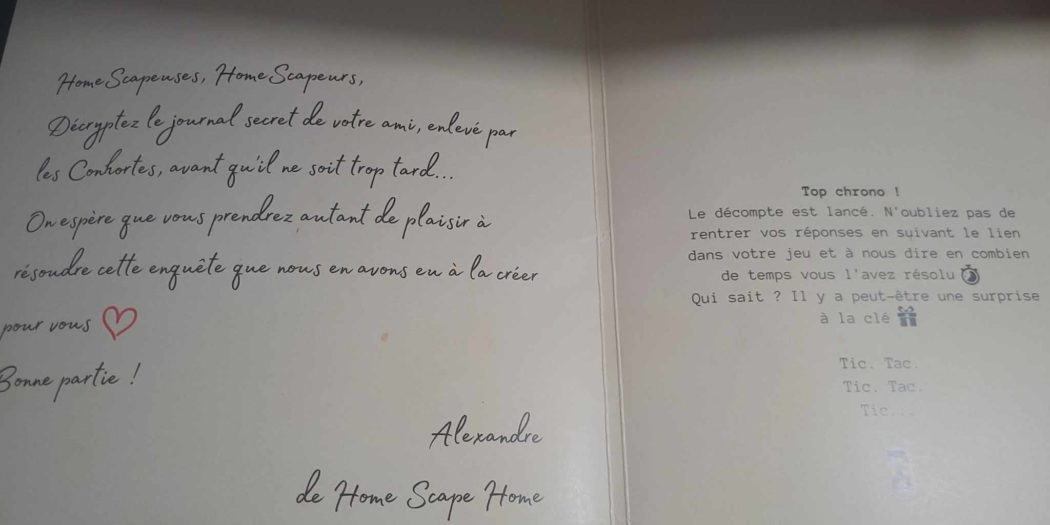 HomeScapeuses, HomeScapeurs,
Décryptez le journal secret de votre ami, enlevé par
les Conhortes, avant qu'il ne soit trop tard...
On espère que vous prendrez autant de plaisir à
résoudre cette enquête que nous en avons eu à la créer
pour vous
Bonne partie !
Alexandre
de Home Scape Home
Top chrono !
Le décompte est lancé. N'oubliez pas de
rentrer vos réponses en suivant le lien
dans votre jeu et à nous dire en combien
de temps vous l'avez résolu
Qui sait ? Il y a peut-être une surprise
à la clé
Tic. Tac.
Tic. Tac.
Tic...